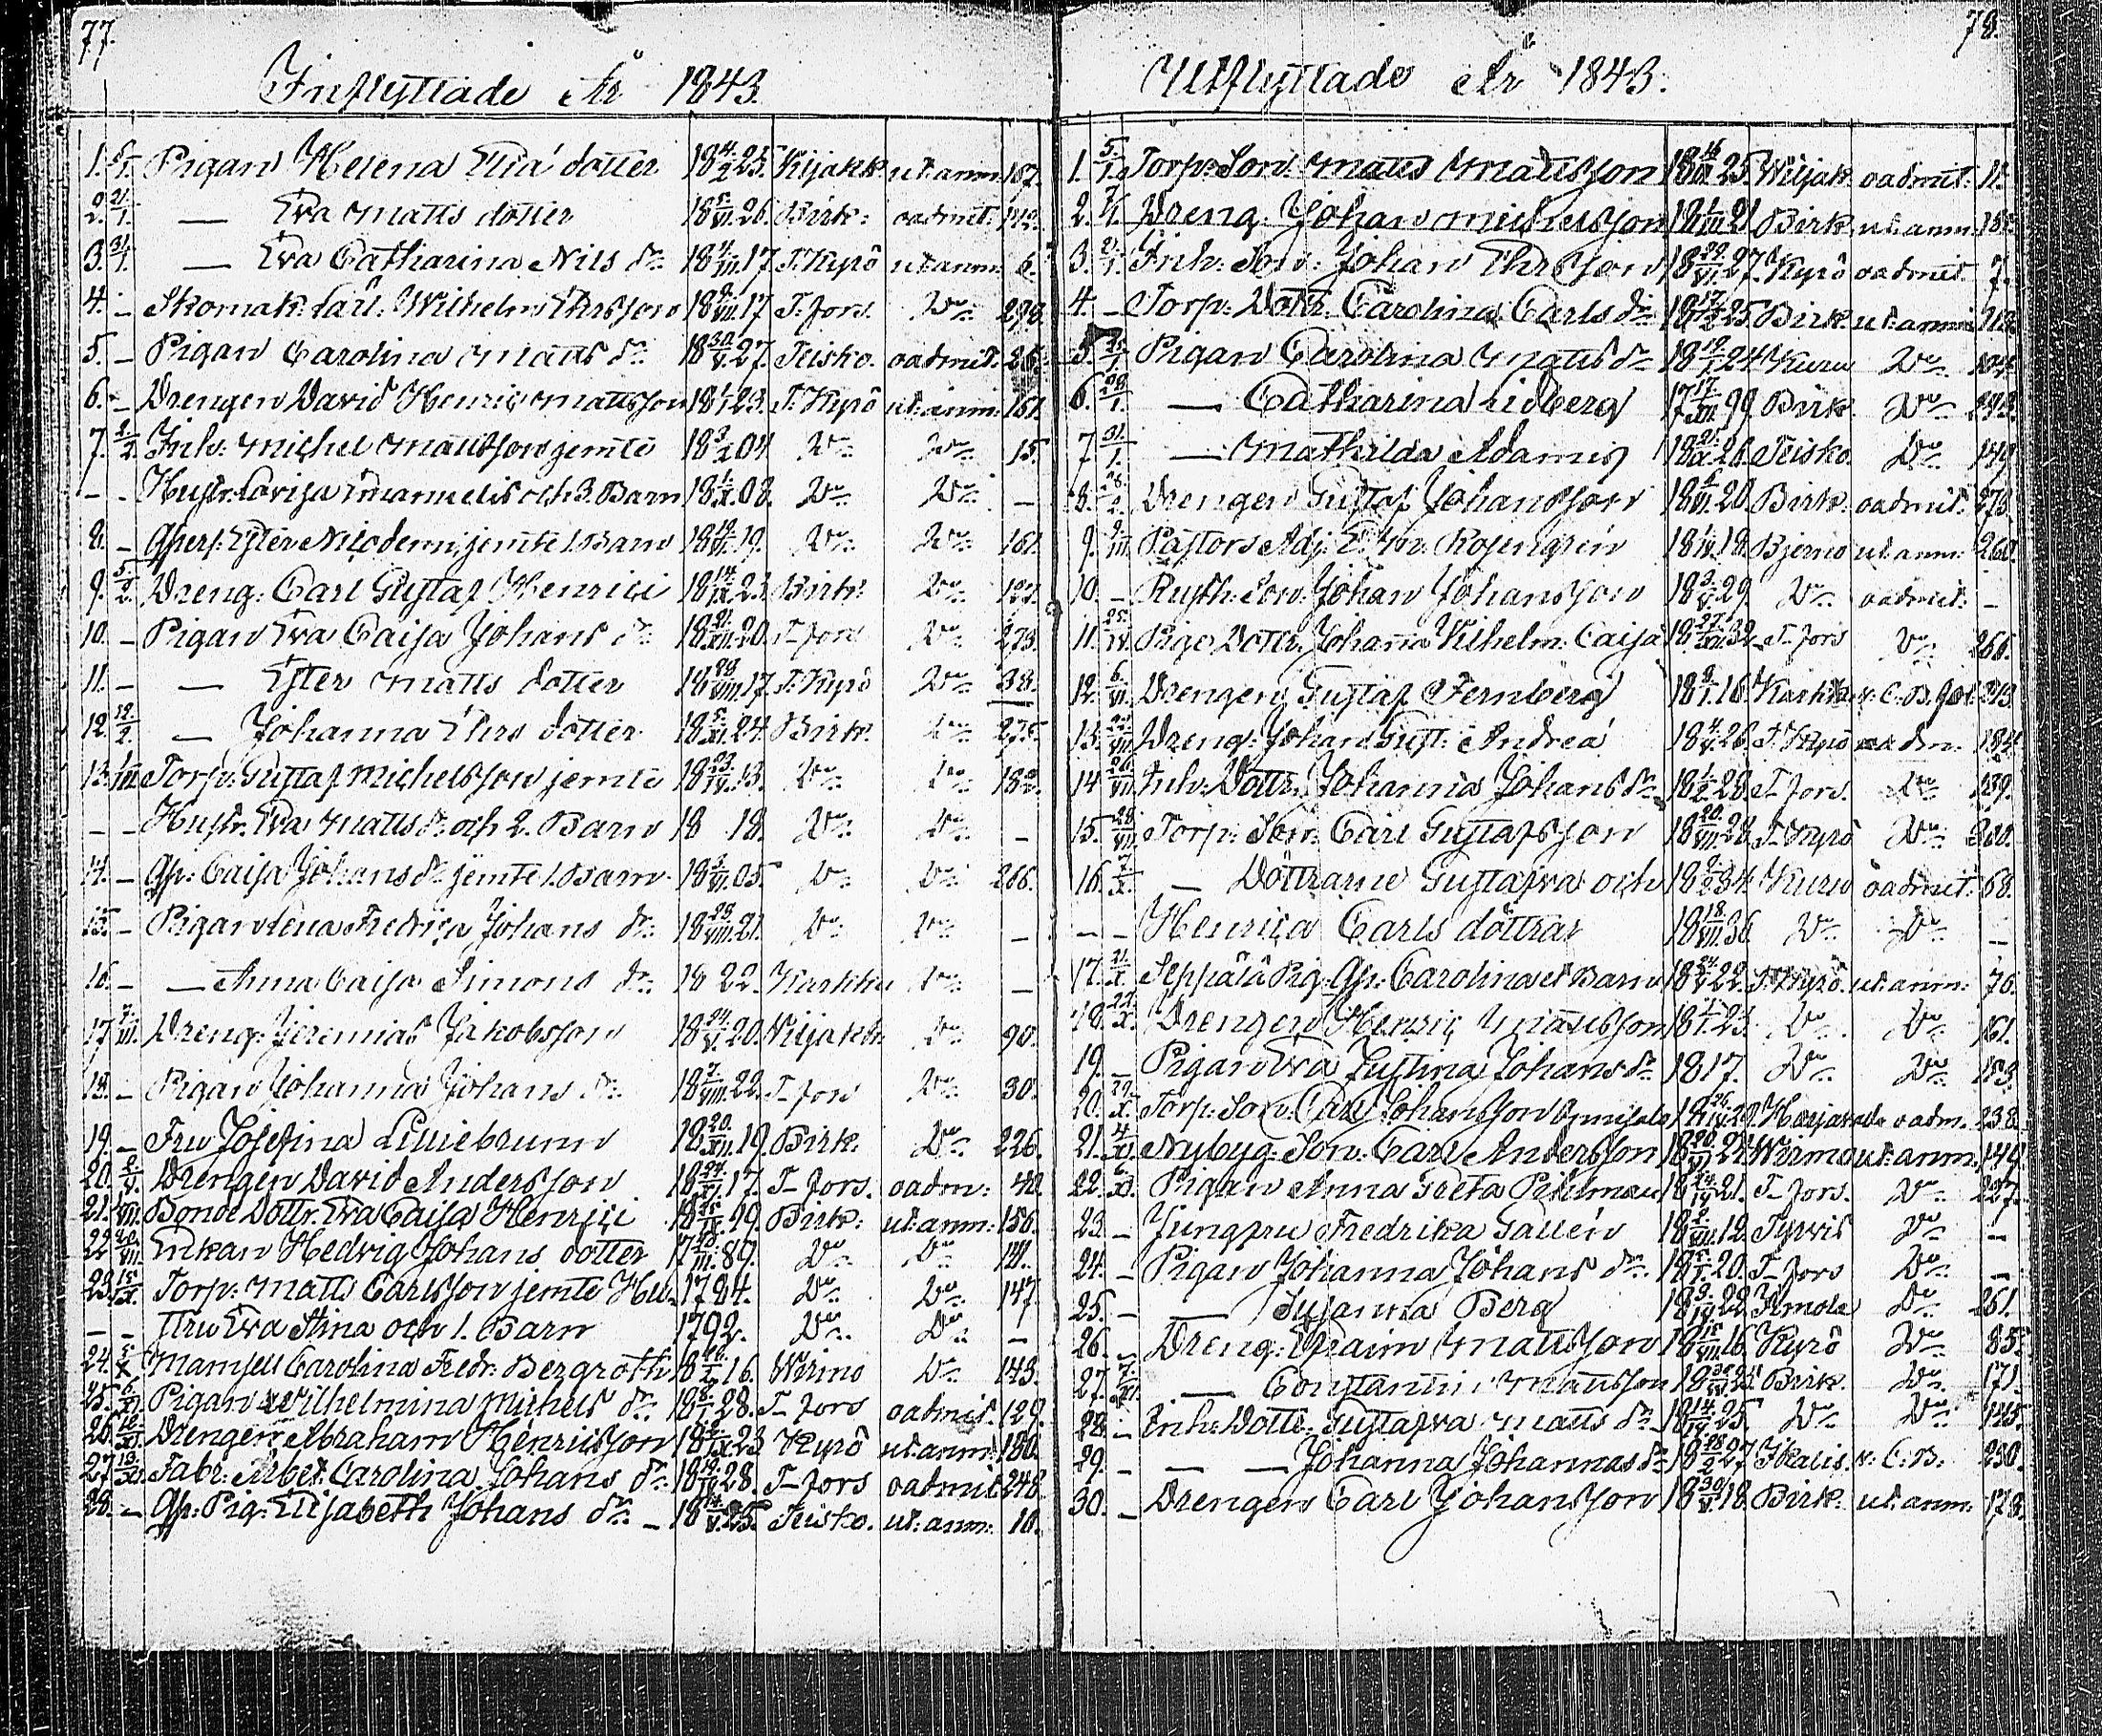 77.
Inflyttade År 1843.
1. 5/1. Pigan Helena Eliæ dotter 18 4/2 25. Viljakk. ut: anm: 187.
2. 21/1. — Eva Matts dotter 18 5/VI. 26. Birk: oadmit: 142.
3. 31/1. — Eva Catharina Nils dr: 18 /III. 17. T. Kyrö ut: anm: 6.
4. – Skomak: Lärl: Wilhelm Ehrsson 18 9/VII. 17. T. Fors. Do: 298.
5. – Pigan Carolina Matts dr: 18 30/V. 27. Teisko. oadmit. 26.
6. – Drengen David Henric Mattsson 18 1/1 23. T. Kyrö ut: anm: 161.
7. 2/2. Inh: Michel Mattsson jemte 18 3/2 04 Do: Do: 15.
– – Hustr: Lovisa Emanuelis och 3. Barn 18 1/X. 08. Do: Do: –
8. – Qfpers: Ester Nicodemi, jemte 1. Barn 18 19/VI. 19. Do: Do: 161.
9. 5/2. Dreng: Carl Gustaf Henrici 18 14/IX. 23. Birk: Do:
10. – Pigan Eva Caisa Johans dr: 18 21/XII. 20. T-Fors Do: 273.
11. – — Ester Matts dotter 18 29/VIII. 17. T. Kyrö Do: 38.
12. 12/2. — Johanna Ehrs dotter 18 5/XI. 24. Birk. Do: 275.
13. 1/III. Torp: Gustaf Michelsson jemte 18 23/IV. 13. Do: Do: 182.
– – Hustr. Eva Matts dr: och 2. Barn 18 18. Do: Do: –
14. – Qfv: Caisa Johans dr: jemte 1. Barn 18 3/VI. 05. Do: Do: 266.
15. – Pigan Lena Fredrica Johans dr: 18 23/VIII. 21. Do: Do: –
16. – — Anna Caisa Simons dr: 18 22. Karkku Do: –
17. /III. Dreng: Jeremias Jakobsson 18 24/V. 20. Viljakk. Do: 90.
18. – Pigan Johanna Johans dr: 18 7/VIII. 22. T-Fors Do: 30.
19. – Fru Josefina Lilliebrunn 18 20/XII. 19. Birk. Do: 226.
20. 2/V. Drengen David Andersson 18 27/XI. 17. T-Fors. oadm: 40.
21. /VII. Bonde Dottr. Eva Caisa Henrici 18 25/IX. 19. Birk: ut: anm: 156.
22. 20/VII. Enkan Hedvig Johans dotter 17 /III. 89. Do: Do: 141.
23. 15/X. Torp: Matts Carlsson jemte Hu- 1784. Do: Do: 147
– – stru Eva Stina och 1. Barn 1792. Do: Do: –
24. 5/X. Mamsell Carolina Fredr: Bergroth 18 /X. 16. Wirmo Do: 143.
25. 6/XI. Pigan Wilhelmina Michels dr: 18 8/1. 28. T-Fors oadmit. 129.
26. 12/XI. Drengen Abraham Henricsson 18 /IX. 23 Kyrö ut: anm: 180.
27. 13/XI. Fabr: Arbet. Carolina Johans dr: 18 19/IV. 28. T-Fors oadmit 248.
28. – Qfv: Pig: Elisabeth Johans dr: – 18 14/V. 25. Teisko. ut: anm: 10.
78.
Utflyttade År 1843.
1. 5/1. Torp: Son: Matts Mattsson 18 16/III. 25. Wiljak oadmit: 11.
2. /1. Dreng: Johan Michelsson 18 1/III. 21 Birk ut: anm: 18
3. 21/1. Inh: Son: Johan Ehrsson 18 29/VI. 27. Kyrö oadmit. 7.
4. – Torp: Dottr: Carolina Carls dr: 18 17/2 25. Birk. ut: anm: 112.
5. 25/1. Pigan Carolina Matts dr: 18 19/1. 24 Kuru Do: 104.
6. 28/1. — Catharina Lidberg 17 17/XI. 99 Birk Do: 243.
7. 31/1. — Mathilda Adamis 18 21/IX. 26. Teisko. Do: 149.
8. 28/2. Drengen Gustaf Johansson 18 2/VI. 20. Birk: oadmit: 273.
9. 9/III. Pastors Adj: Rosengren 18 1/IV. 18. Bjerno ut: anm: 260.
10. – Rusth: Son: Johan Johansson 18 3/V. 29. Do: oadmit: –
11. 25/IV. Pigo Dottr. Johanna Vilhelm: Caisa 18 27/XII. 32. T-Fors Do: 266.
12. 6/VI. Drengen Gustaf Fernberg 18 9/1. 16. Karkku v: C: B. fol. 213.
13. 22/VII. Dreng: Johan Gust: Andreæ 18 4/V. 26. T. Kyrö oadm: 184.
14. 26/VII. Inh: Dottr. Johanna Johans dr: 18 1/2. 28. T-Fors. Do: 139.
15. 28/VII. Torp: Son: Carl Gustafsson 18 20/VII. 28. T-Kyrö Do: 200.
16. 7/X. – Döttrarne Gustafva och 18 2/2 34. Kuru oadmit. 68.
– – Henrica Carls döttrar 18 18/VII. 36. Do: Do: –
17. 21/X. Seppälä Pig: Qfv: Carolina et Barn 18 24/V. 22. T. Kyrö. ut: anm: 76.
18. 22/X. Drengen Henric Mattsson 18 1/1. 23. Do: Do: 161.
19. Pigan Eva Justina Johans dr: 1817. Do: Do: 183.
20. 29/X. Torp: Son: Carl Johansson 18 26/IV. 29. Harjavalt. oadm. 238.
21. 4/XI. Nybyg: Son: Carl Andersson 18 20/VI. 24. Wirmo ut: anm: 140.
22. 6/XI. Pigan Anna Greta Pihlman 18 24/IV. 21. T-Fors. Do: 227.
23. – Jungfru Fredrika Gallén 18 2/VIII. 12. Tyrvis Do: –
24. – Pigan Johanna Johans dr: 18 5/1. 20. T-Fors Do: –
25. – — Susanna Berg 18 9/IV. 22. Kimola Do: 261.
26. – Dreng: Efraim Mattsson 18 15/VII. 16. Kyrö Do: 85.
27. 7/XI. — Constantin Mattsson 18 30/V. 25 Birk. Do: 171.
28. – Inh: Dottr: Gustafva Matts dr: 18 14/IV. 25. Do: Do: 145.
29. – – — Johanna Johannas dr: 18 28/2. 27. Ikalis. v: C: B: 230.
30. – Drengen Carl Johansson 18 30/V. 18. Birk: ut: anm: 178.